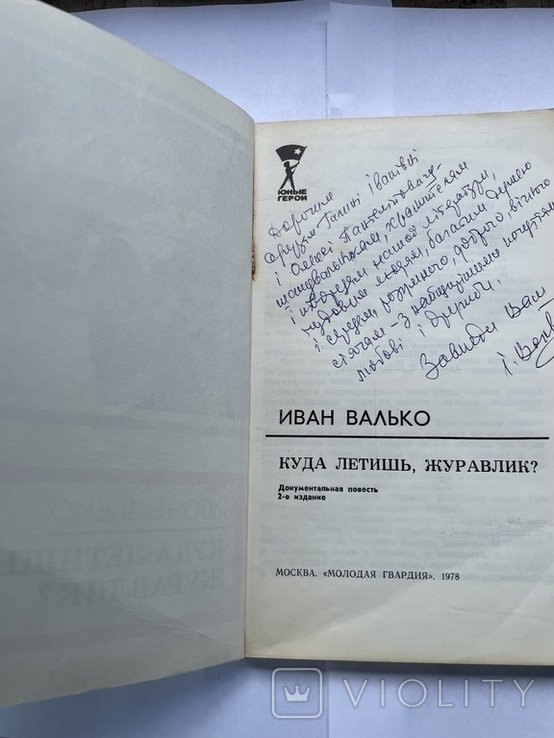 ЮНЫЕ
ГЕРОИ
Дорогим
друзям Галині Іванівні
і Олексі Пантелеймонович
шанувальникам, хранителям
і творцям нашої літератури,
чудовим людям, багатим душею
і серцем, розумного, доброго, вічного
сіячам – з найщирішими почуттями
любові і дружби.
Завжди Ваш
І. Валько
ИВАН ВАЛЬКО
КУДА ЛЕТИШЬ, ЖУРАВЛИК?
Документальная повесть
2-е издание
МОСКВА. «МОЛОДАЯ ГВАРДИЯ». 1978
КУДА ЛЕТИШЬ
ЖУРАВЛИК?
VIOLITY